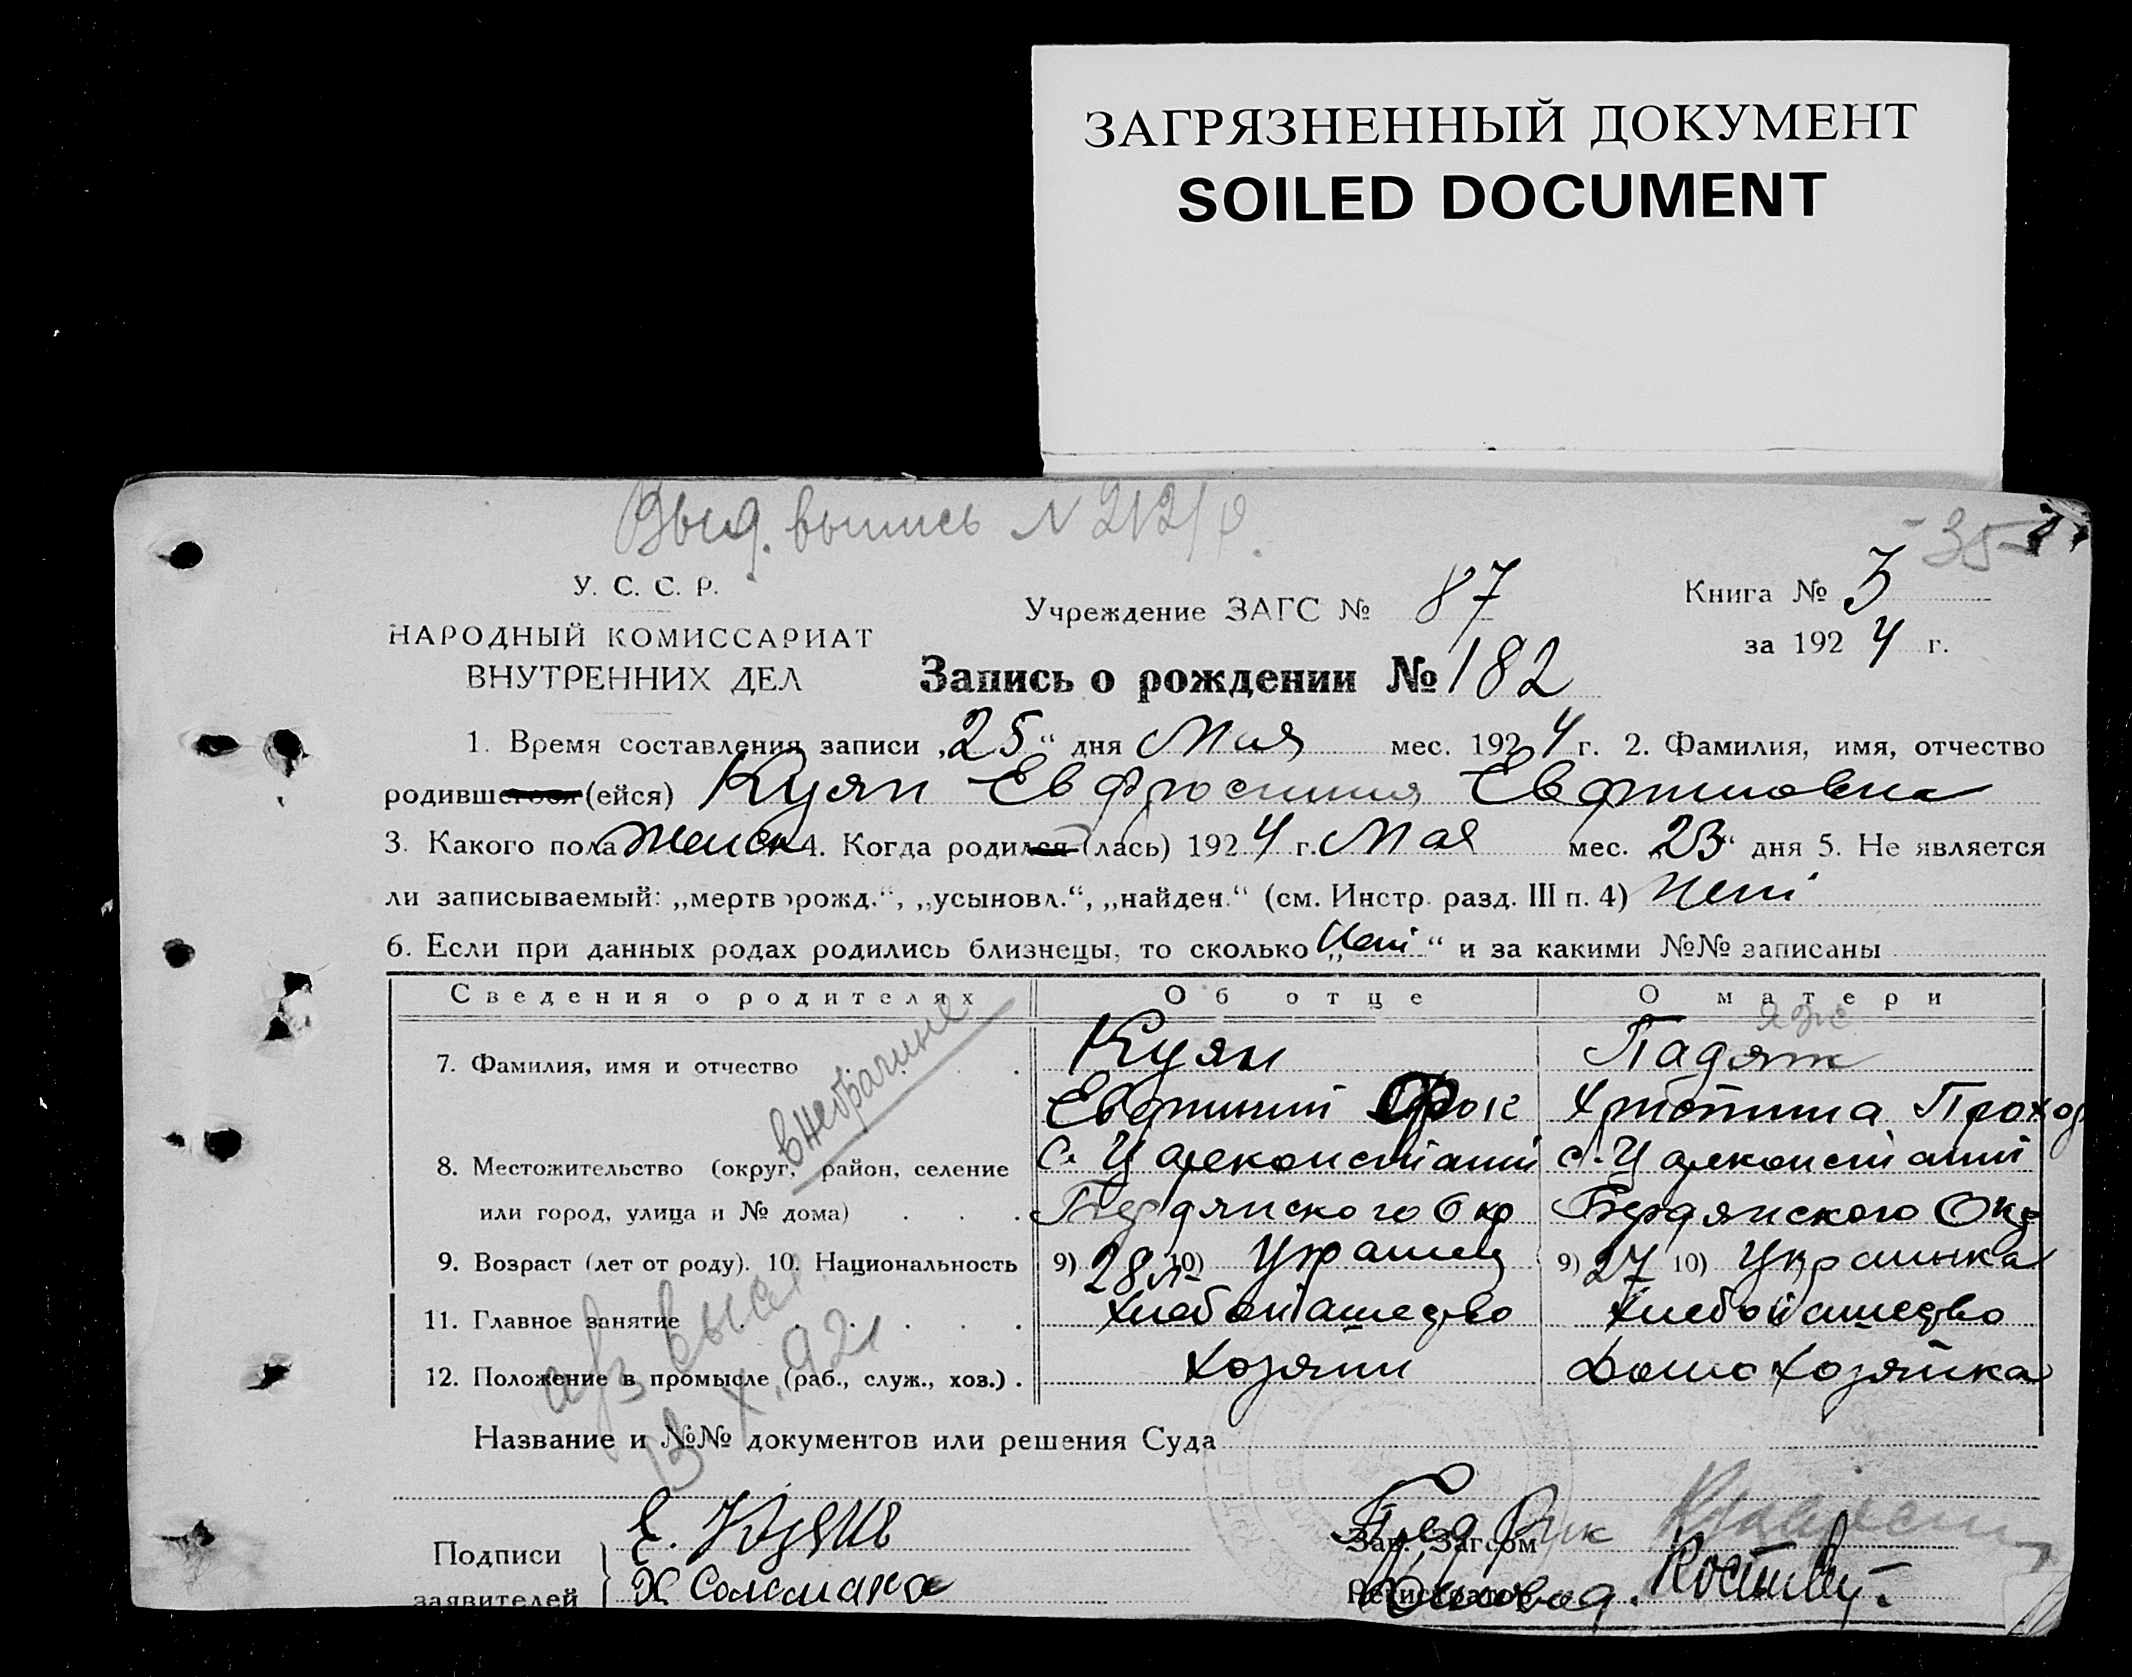 ЗАГРЯЗНЕННЫЙ ДОКУМЕНТ
SOILED DOCUMENT
Выд. выпись N 212/
-35-
У. С. С. Р.
НАРОДНЫЙ КОМИССАРИАТ
ВНУТРЕННИХ ДЕЛ
Учреждение ЗАГС № 87
Книга № 3
за 1924 г.
Запись о рождении № 182
1. Время составления записи „25“ дня Мая мес. 1924 г. 2. Фамилия, имя, отчество
родившегося (ейся) Куян Евфросиния
3. Какого пола женск 4. Когда родился (лась) 1924 г. Мая мес. „23“ дня 5. Не является
ли записываемый: „мертворожд.“, „усыновл.“, „найден.“ (см. Инстр. разд. III п. 4) Нет
6. Если при данных родах родились близнецы, то сколько „Нет“ и за какими №№ записаны
Сведения о родителях Об отце О матери
внебрачные
7. Фамилия, имя и отчество Куян
Христина Прохор
8. Местожительство (округ, район, селение с. Цареконстант с. Цареконстант
или город, улица и № дома) Бердянского Окр Бердянского Окр
9. Возраст (лет от роду). 10. Национальность 9) 28 л 10) Украинец 9) 27 10) Украинка
11. Главное занятие Хлебопашество Хлебопашество
12. Положение в промысле (раб., служ., хоз.) Хозяин Домохозяйка
Название и №№ документов или решения Суда
Подписи
заявителей
Е. Куян
Зав. Загсом
Пред Рик